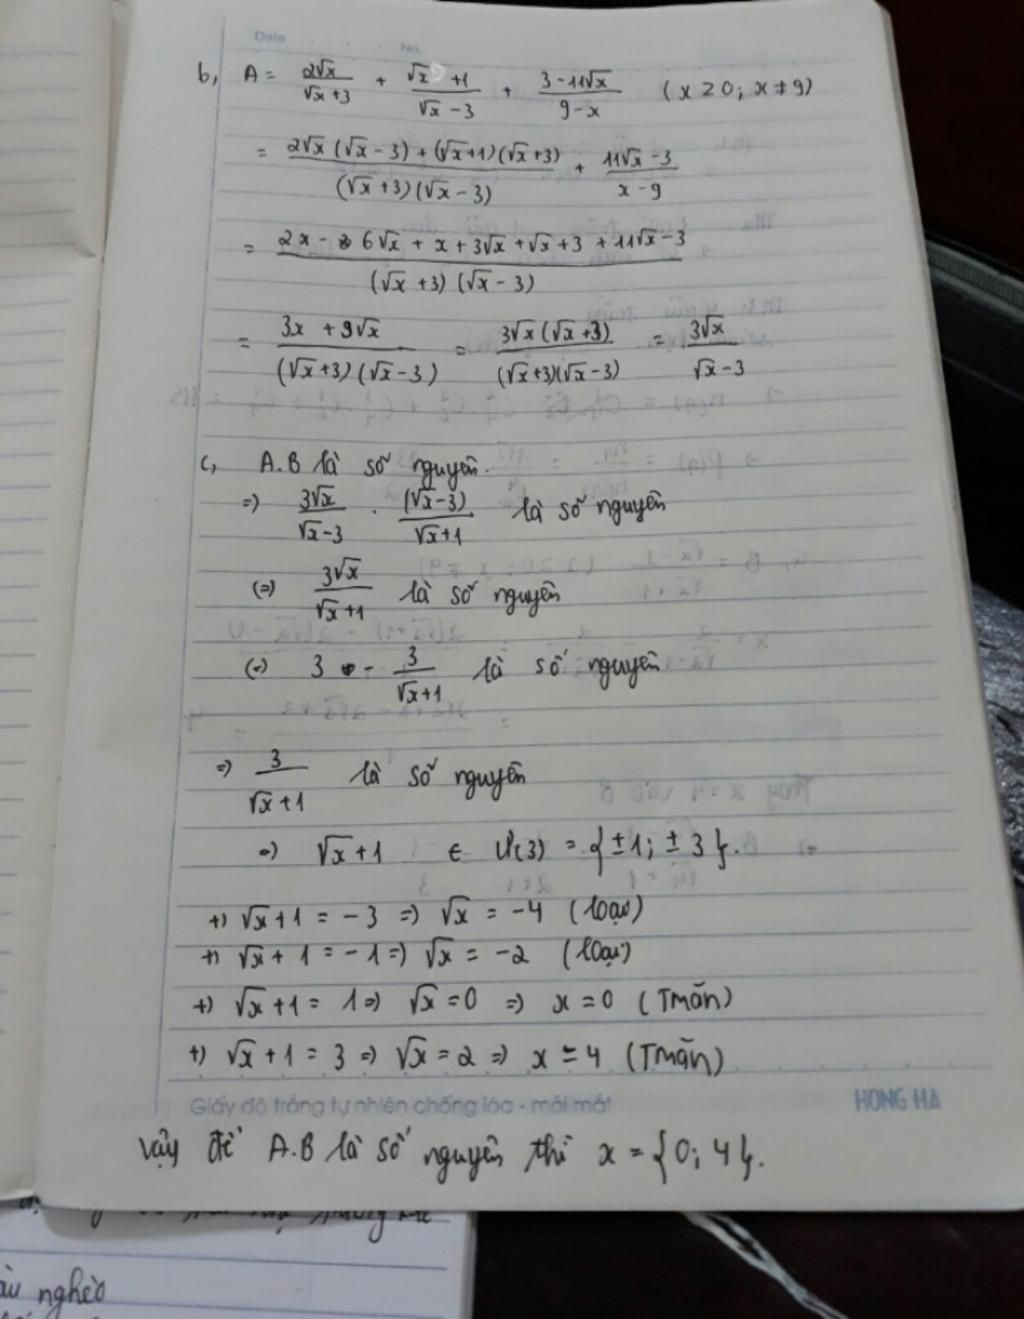 Date No.
b, A = 2√x/(√x+3) + (√x+1)/(√x-3) + (3-11√x)/(9-x) (x ≥ 0; x ≠ 9)
= (2√x(√x-3)+(√x+1)(√x+3))/((√x+3)(√x-3)) + (11√x-3)/(x-9)
= (2x-6√x+x+3√x+√x+3+11√x-3)/((√x+3)(√x-3))
= (3x+9√x)/((√x+3)(√x-3)) = 3√x(√x+3)/((√x+3)(√x-3)) = 3√x/(√x-3)
c, A.B là số nguyên.
=) 3√x/(√x-3) . (√x-3)/(√x+1) là số nguyên
(=) 3√x/(√x+1) là số nguyên
(=) 3 - 3/(√x+1) là số nguyên
=) 3/(√x+1) là số nguyên
=) √x+1 ∈ Ư(3) = {±1; ±3}.
+) √x+1 = -3 =) √x = -4 (loại)
+) √x+1 = -1 =) √x = -2 (loại)
+) √x+1 = 1 =) √x = 0 =) x = 0 (Tmãn)
+) √x+1 = 3 =) √x = 2 =) x = 4 (Tmãn)
Giấy độ trắng tự nhiên chống lóa - mỏi mắt HONG HA
Vậy để A.B là số nguyên thì x = {0; 4}.
nghèo